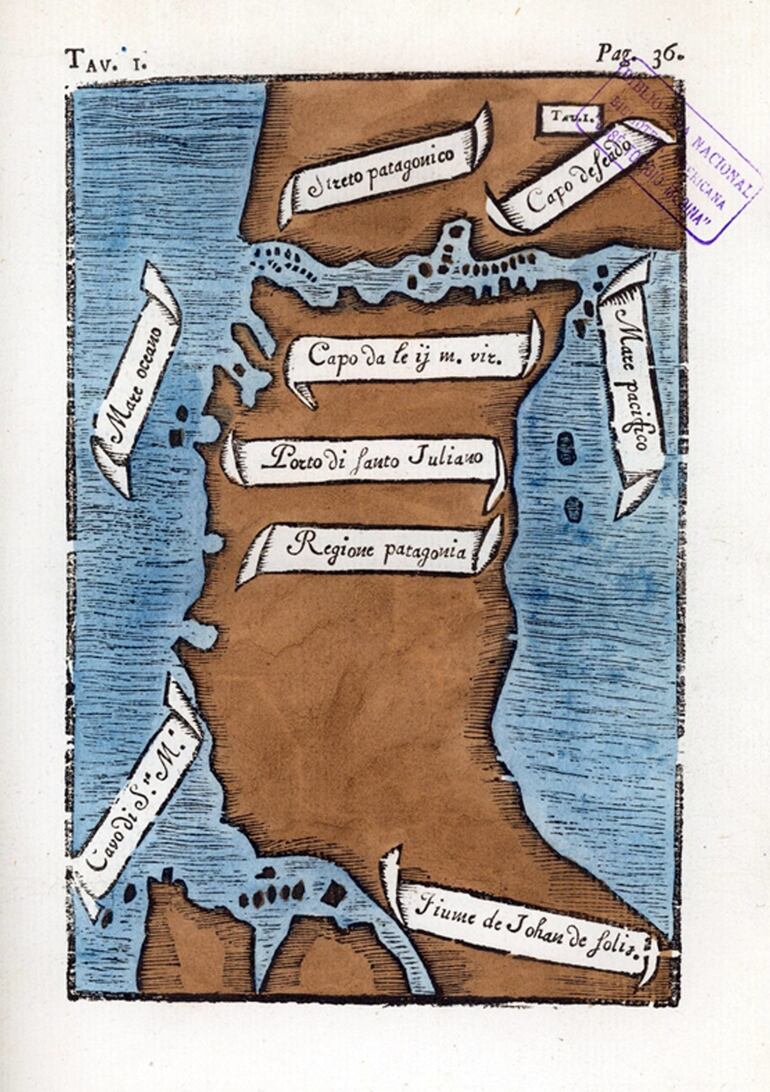 TAV. I.
Pag. 36.
TAV. I.
Streto patagonico
Capo deseado
Mare oceano
Mare pacifico
Capo da le ij m. vir.
Porto di santo Juliano
Regione patagonia
Cavo di S.ᵗᵃ M.ᵃ
Fiume de Johan de solis.
NACIONAL
"JOSÉ TORIBIO MEDINA"